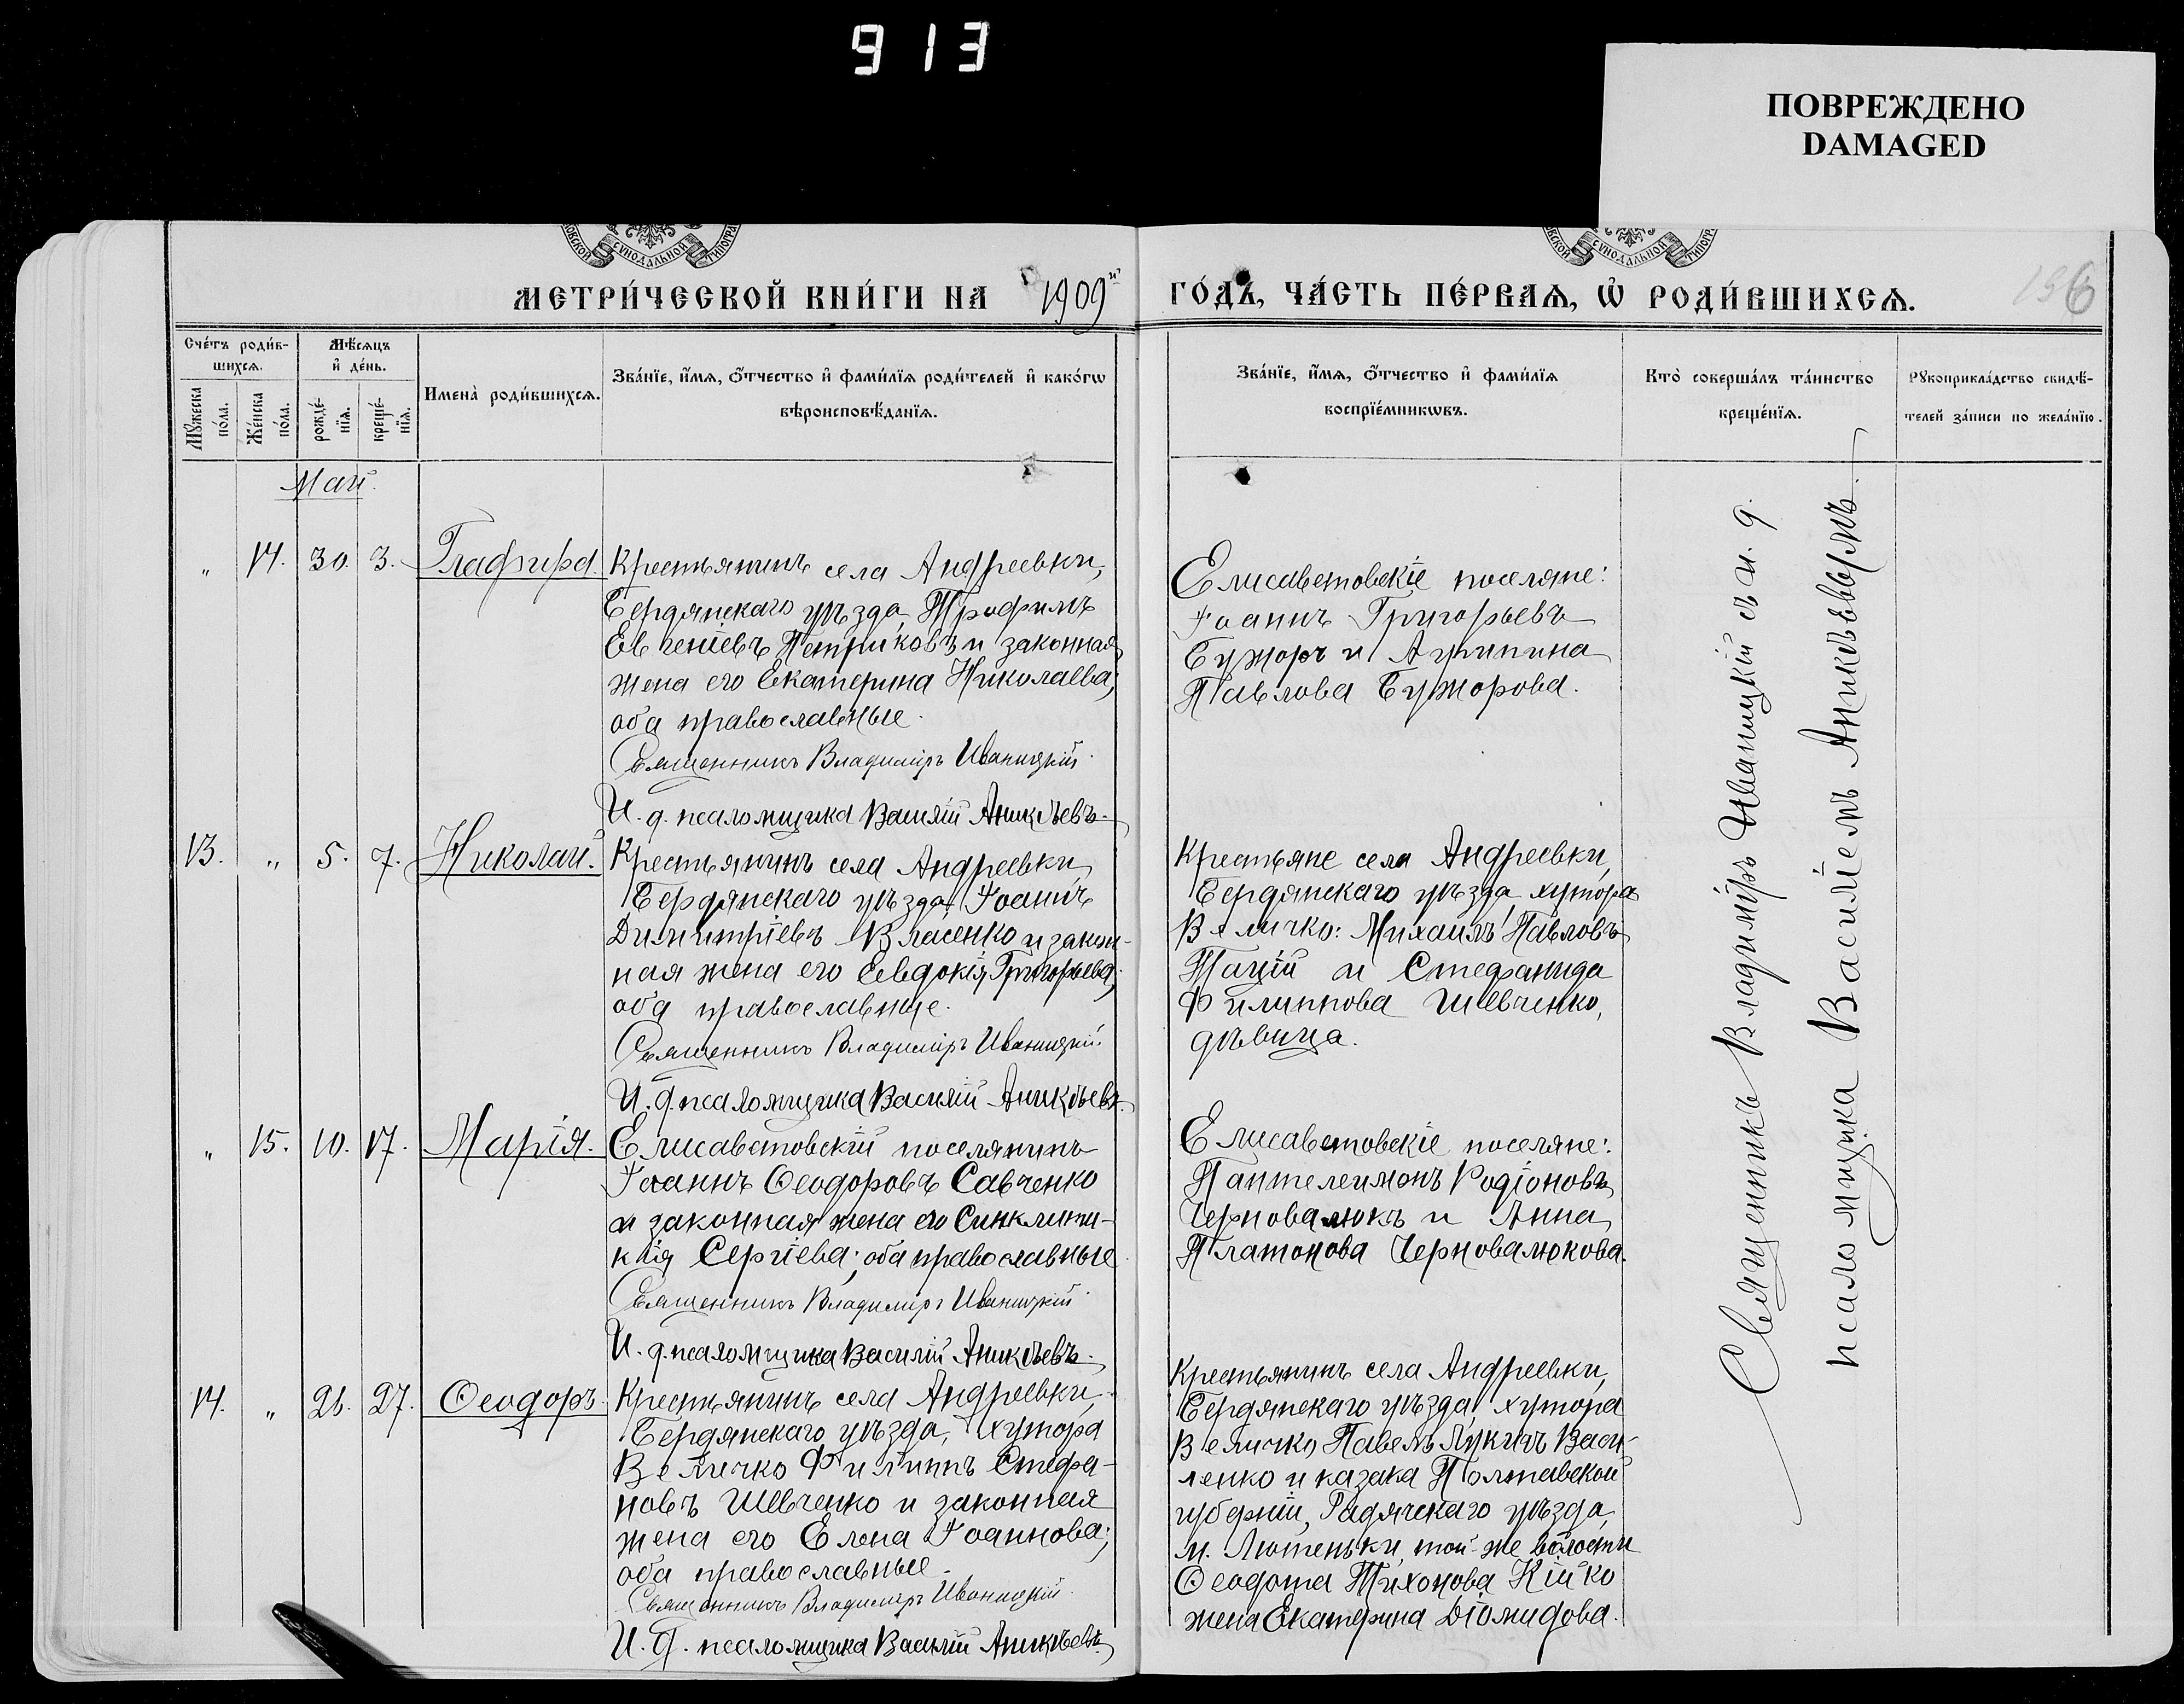 913
ПОВРЕЖДЕНО
DAMAGED
СѴНОДАЛЬНОЙ
СѴНОДАЛЬНОЙ
МЕТРИ́ЧЕСКОЙ КНИ́ГИ НА 1909й ГО́ДЪ, ЧА́СТЬ ПЕ́РВАѦ, Ѿ РОДИ́ВШИХСѦ.
156
Сче́тъ роди́в-
шихсѧ.
Мѣ́сѧцъ
и҆ де́нь.
Мꙋ́жеска
по́ла.
Же́нска
по́ла.
рожде́-
нїѧ.
креще́-
нїѧ.
Имена̀ роди́вшихсѧ.
Зва́нїе, и҆́мѧ, ѻ҆́тчество и҆ фами́лїѧ роди́телей и҆ како́гѡ
вѣроисповѣ́данїѧ.
Зва́нїе, и҆́мѧ, ѻ҆́тчество и҆ фами́лїѧ
воспрїе́мникѡвъ.
Кто̀ соверша́лъ та́инство
креще́нїѧ.
Рꙋкоприкла́дство свидѣ́-
телей за́писи по жела́нїю.
Май.
„ 14. 30. 3. Глафира.
Крестьянинъ села Андреевки,
Бердянскаго уѣзда, Трофимъ
Евгеніевъ Петриковъ и законная
жена его Екатерина Николаева;
оба православные.
Священникъ Владиміръ Иваницкій.
И. д. псаломщика Василій Аникѣевъ.
Елисаветовскіе поселяне:
Іоаннъ Григорьевъ
Бужоръ и Агипина
Павлова Бужорова.
13. „ 5. 7. Николай.
Крестьянинъ села Андреевки,
Бердянскаго уѣзда, Іоаннъ
Димитріевъ Власенко и закон-
ная жена его Евдокія Григорьева;
оба православные.
Священникъ Владиміръ Иваницкій.
И. д. псаломщика Василій Аникѣевъ.
Крестьяне села Андреевки,
Бердянскаго уѣзда, хутора
Величко: Михаилъ Павловъ
Пацій и Стефанида
Филиппова Шевченко,
дѣвица.
„ 15. 10. 17. Марія.
Елисаветовскій поселянинъ
Іоаннъ Ѳеодоровъ Савченко
и законная жена его Синклити-
кія Сергіева; оба православные.
Священникъ Владиміръ Иваницкій.
И. д. псаломщика Василій Аникѣевъ.
Елисаветовскіе поселяне:
Пантелеимонъ Родіоновъ
Черновалюкъ и Анна
Платонова Черновалюкова.
14. „ 26. 27. Ѳеодоръ.
Крестьянинъ села Андреевки,
Бердянскаго уѣзда, хутора
Величко Филиппъ Стефа-
новъ Шевченко и законная
жена его Елена Іоаннова;
оба православные.
Священникъ Владиміръ Иваницкій.
И. д. псаломщика Василій Аникѣевъ.
Крестьянинъ села Андреевки,
Бердянскаго уѣзда, хутора
Величко, Павелъ Лукичъ Васи-
ленко и казака Полтавской
губерніи, Гадячскаго уѣзда,
м. Лютеньки, той-же волости
Ѳеодота Тихонова Кійко
жена Екатерина Діомидова.
Священникъ Владиміръ Иваницкій съ и. д.
псаломщика Василіемъ Аникѣевымъ.